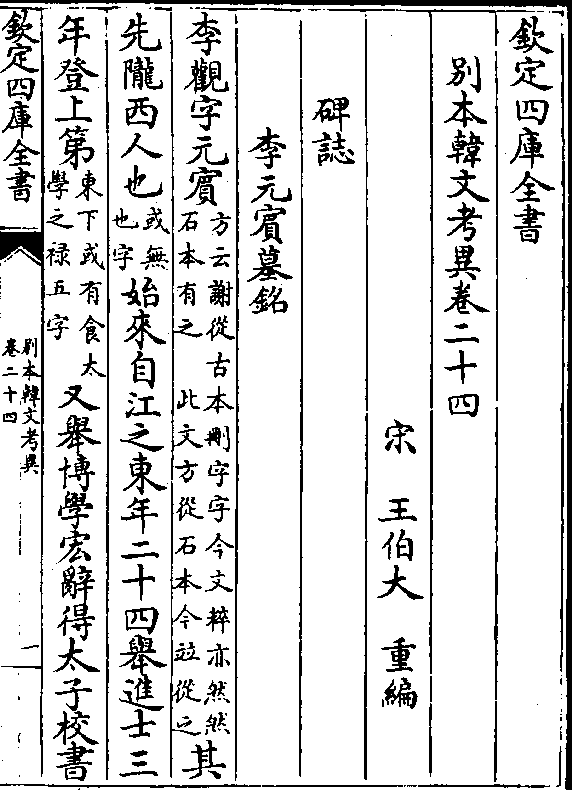 欽定四庫全書
別本韓文考異卷二十四
宋 王伯大 重編
碑誌
李元賓墓銘
李觀字元賓方云謝從古本刪字字今文粹亦然然石本有之 此文方從石本今竝從之其
先隴西人也或無也字始來自江之東年二十四舉進士三
年登上第東下或有食太學之祿五字又舉博學宏辭得太子校書
欽定四庫全書
別本韓文考異
卷二十四
一